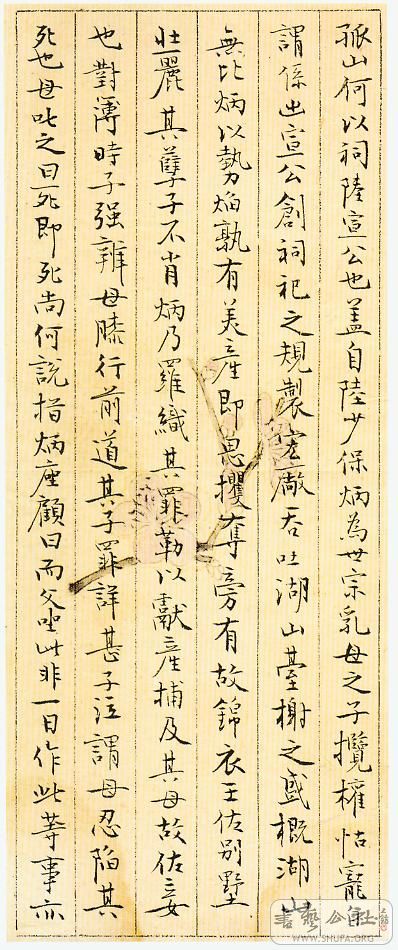 孤山何以祠陸宣公也盖自陸少保炳為世宗乳母之子攬權怙寵自
謂係出宣公創祠祀之規製宏廠吞吐湖山臺榭之盛概湖
無比炳以勢焰孰有美產即思攫奪旁有故錦衣王佐別墅
壯麗其孽子不肖炳乃羅織其罪勒以獻產捕及其母故佐妾
也對薄時子强辯母膝行前道其子罪詳甚子泣謂母忍陷其
死也母叱之曰死即死尚何說指炳座顧曰而父坐此非一日作此等事亦
書藝公社
WWW.SHUFA.ORG